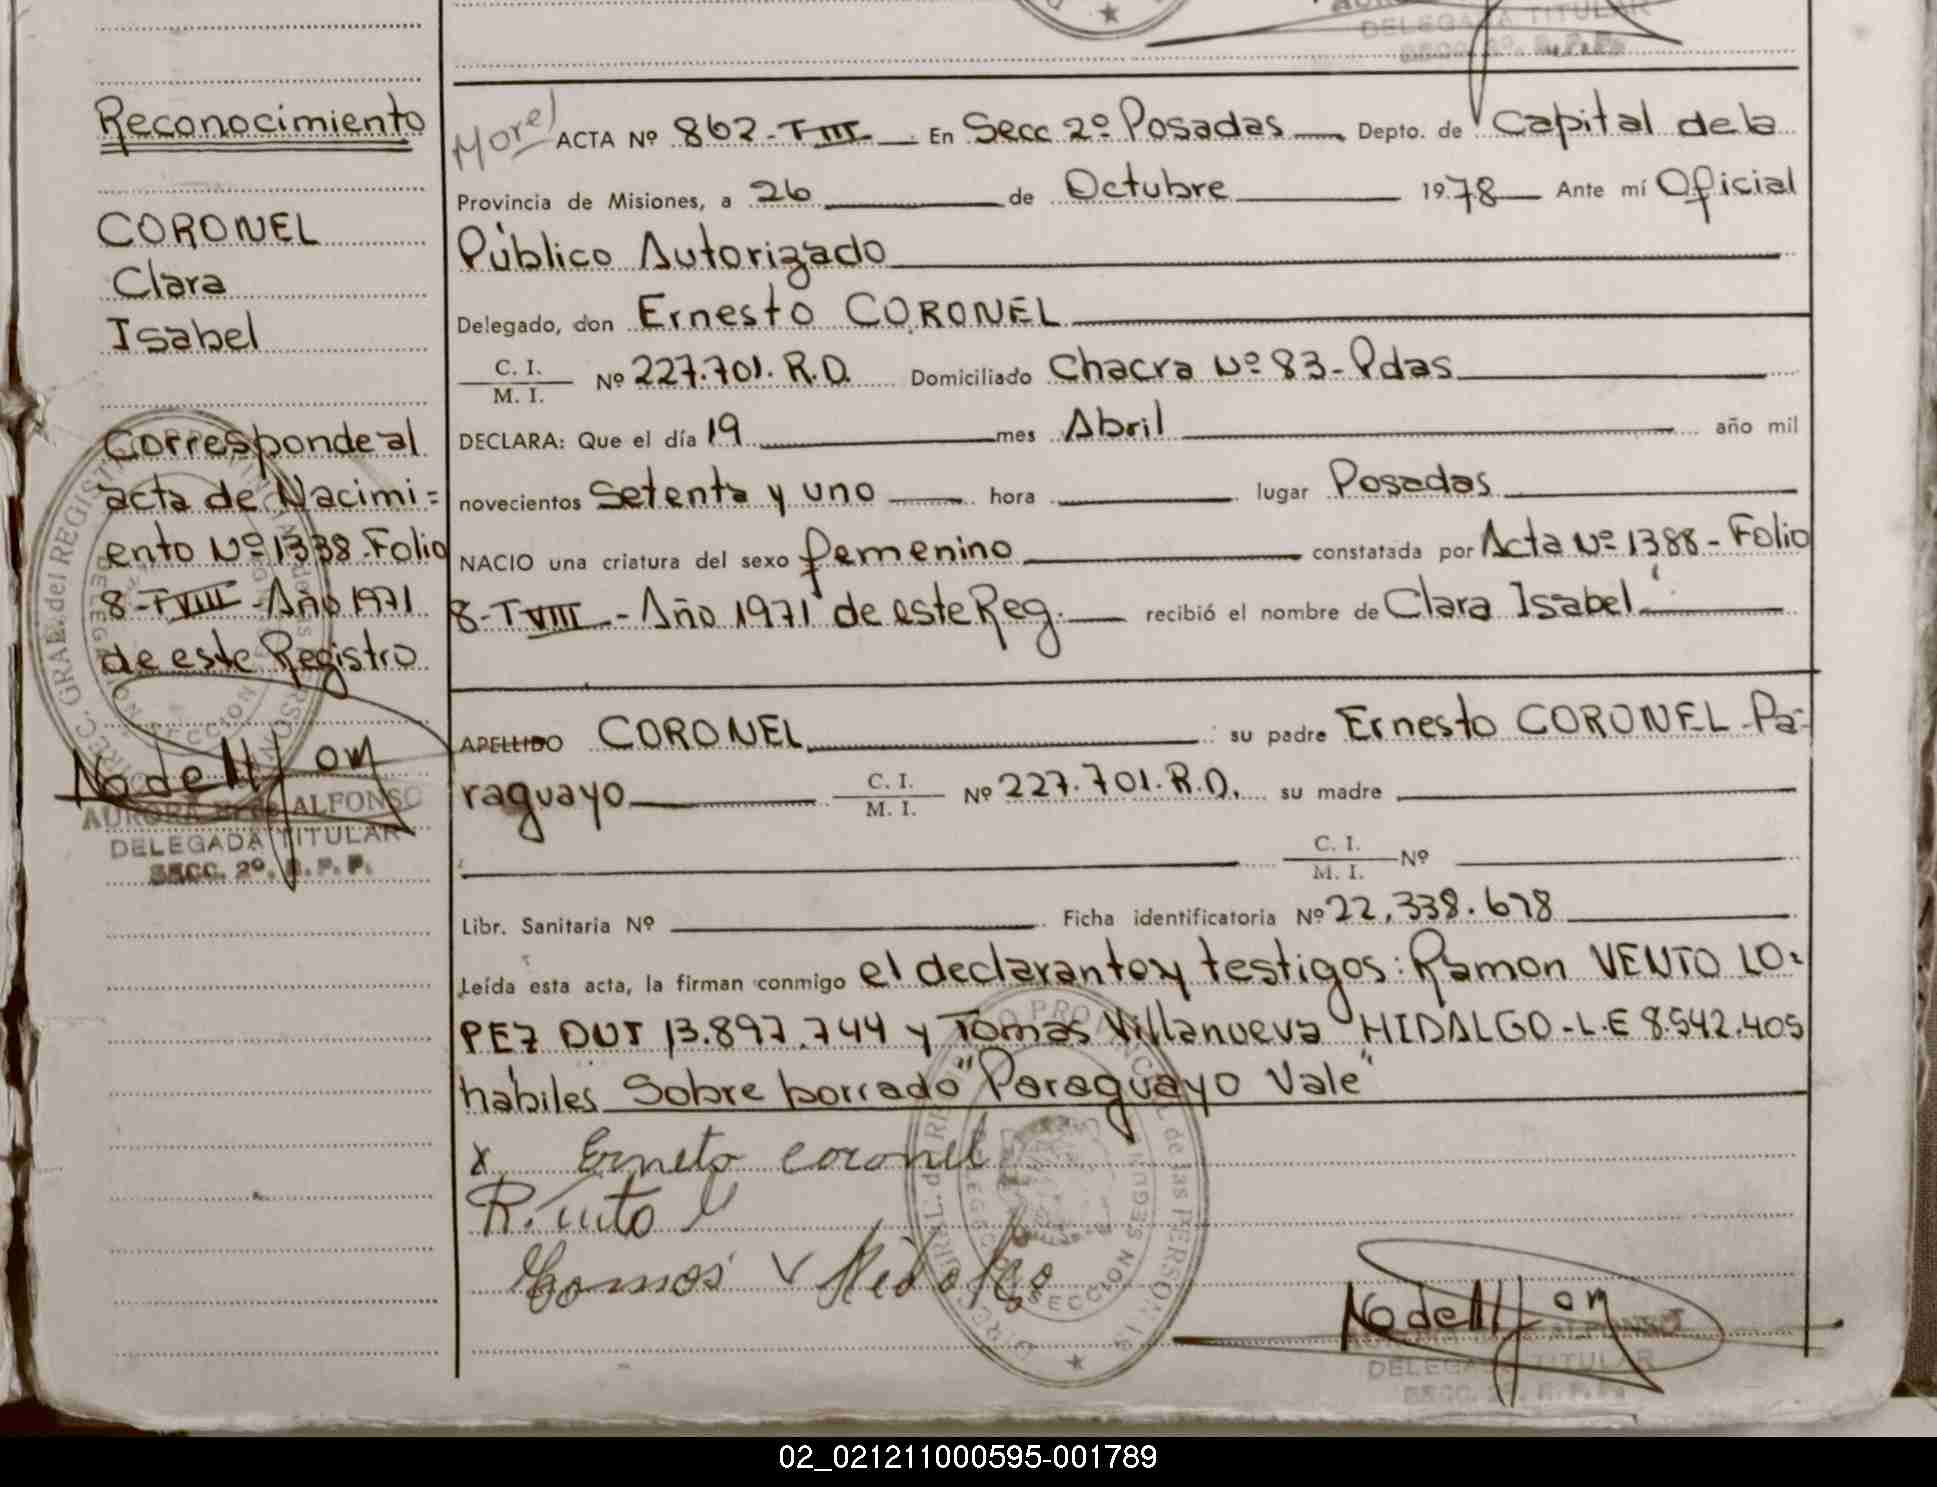 DELEGADA TITULAR
SECC. 2º. R.P.P.
Reconocimiento
CORONEL
Clara
Isabel
Corresponde al
acta de Nacimi=
ento Nº 1338-Folio
8-TVIII-Año 1971
de este Registro
AURORA ALFONSO
DELEGADA TITULAR
SECC. 2º. R. P. P.
Morel ACTA Nº 862-TIII En Secc 2º Posadas Depto. de Capital de la
Provincia de Misiones, a 26 de Octubre 1978 Ante mí Oficial
Público Autorizado
Delegado, don Ernesto CORONEL
C. I. / M. I. Nº 227.701. R.D. Domiciliado Chacra Nº 83-Pdas
DECLARA: Que el día 19 mes Abril año mil
novecientos Setenta y uno hora lugar Posadas
NACIO una criatura del sexo femenino constatada por Acta Nº 1388-Folio
8-TVIII-Año 1971 de este Reg. recibió el nombre de Clara Isabel
APELLIDO CORONEL su padre Ernesto CORONEL-Pa-
raguayo C. I. / M. I. Nº 227.701.R.D. su madre
C. I. / M. I. Nº
Libr. Sanitaria Nº Ficha identificatoria Nº 22.338.678
Leída esta acta, la firman conmigo el declarante y testigos: Ramon VENTO LO-
PEZ DUT 13.897.744 y Tomas Villanueva HIDALGO-L.E 8.542.405
hábiles Sobre borrado "Paraguayo Vale"
x Erneto coronel
R. Vento L
Tomas V Hidalgo
DELEGADA TITULAR
SECC. 2º. R. P. P.
02_021211000595-001789